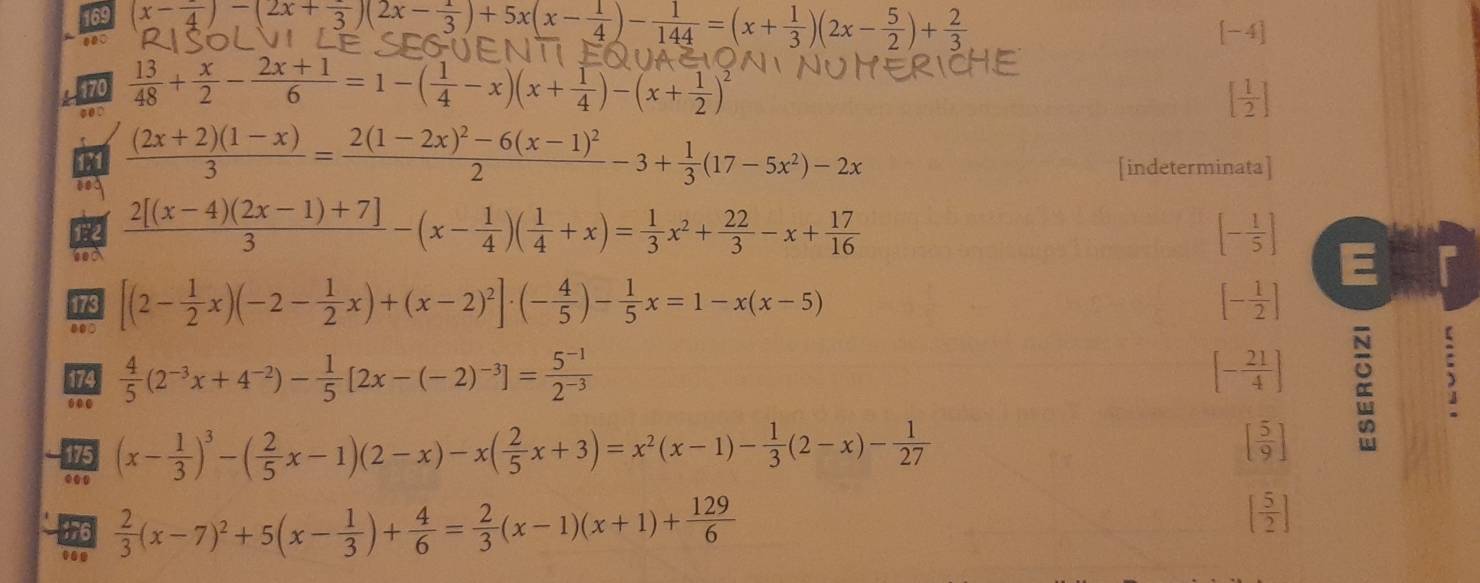 169 (x - 1/4) - (2x + 1/3)(2x - 1/3) + 5x(x - 1/4) - 1/144 = (x + 1/3)(2x - 5/2) + 2/3 [-4]
RISOLVI LE SEGUENTI EQUAZIONI NUMERICHE
170 13/48 + x/2 - (2x + 1)/6 = 1 - (1/4 - x)(x + 1/4) - (x + 1/2)² [1/2]
171 (2x + 2)(1 - x)/3 = (2(1 - 2x)² - 6(x - 1)²)/2 - 3 + 1/3(17 - 5x²) - 2x [indeterminata]
172 2[(x - 4)(2x - 1) + 7]/3 - (x - 1/4)(1/4 + x) = 1/3x² + 22/3 - x + 17/16 [-1/5]
173 [(2 - 1/2x)(-2 - 1/2x) + (x - 2)²]·(-4/5) - 1/5x = 1 - x(x - 5) [-1/2]
174 4/5(2⁻³x + 4⁻²) - 1/5[2x - (-2)⁻³] = 5⁻¹/2⁻³ [-21/4]
175 (x - 1/3)³ - (2/5x - 1)(2 - x) - x(2/5x + 3) = x²(x - 1) - 1/3(2 - x) - 1/27 [5/9]
176 2/3(x - 7)² + 5(x - 1/3) + 4/6 = 2/3(x - 1)(x + 1) + 129/6 [5/2]
E
ESERCIZI